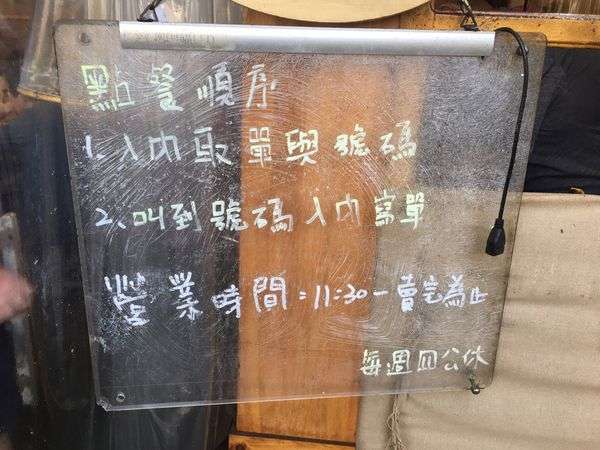 點餐順序
1. 入內取單與號碼
2. 叫到號碼入內寫單
營業時間：11:30－賣完為止
每週四公休